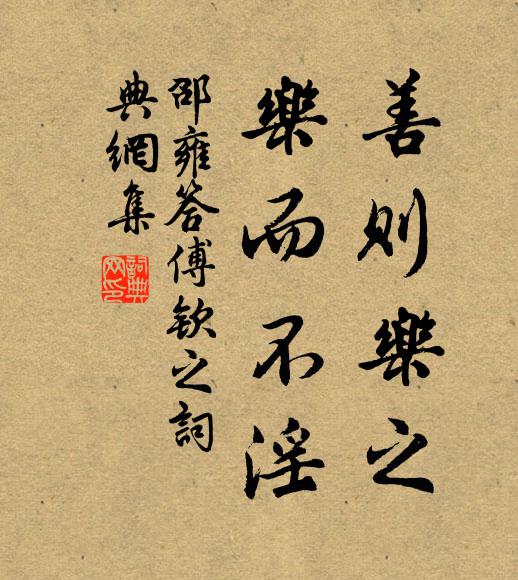 善則樂之
樂而不淫
邵雍答傅欽之詞
典網集
詞典網印